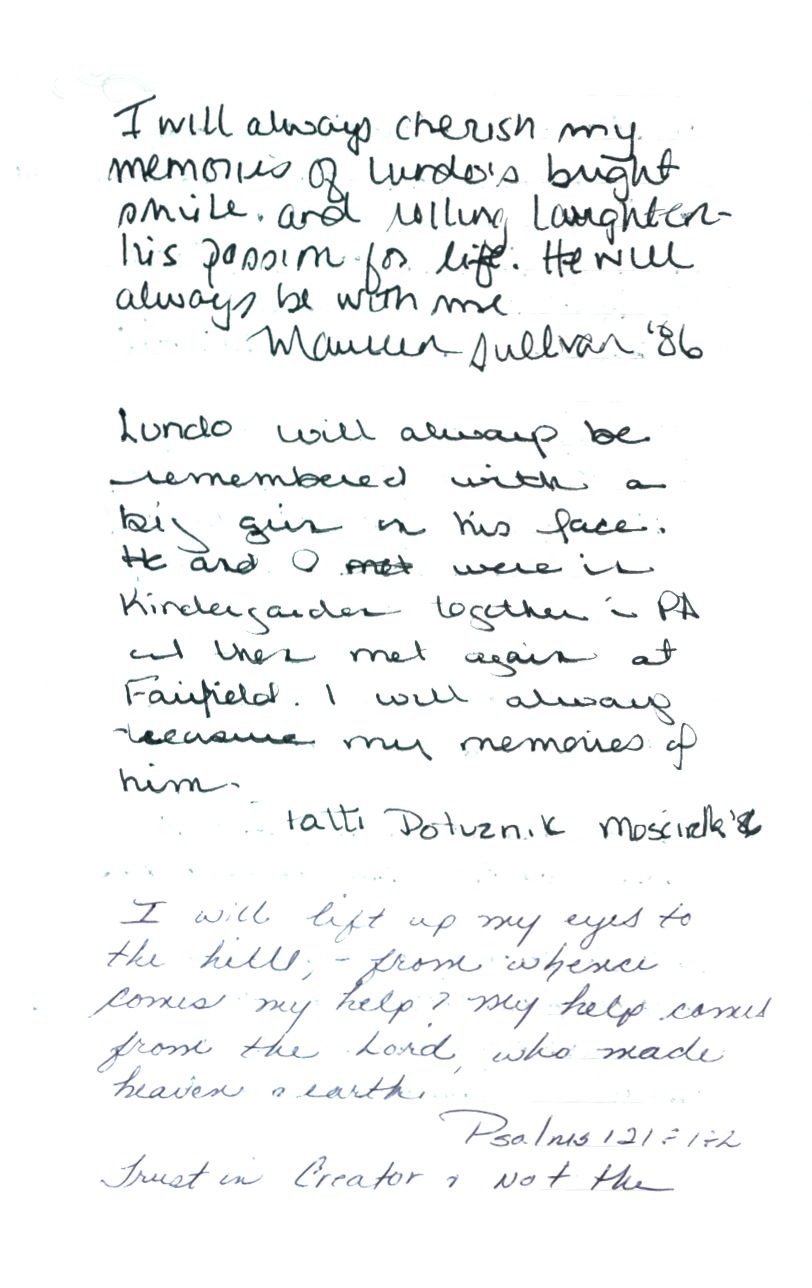 I will always cherish my
memories of Lundo's bright
smile. and rolling laughter-
his passion for life. He will
always be with me
Maureen Sullivan '86
Lundo will always be
remembered with a
big grin on his face.
He and I met were in
Kindergarden together in PA
and then met again at
Fairfield. I will always
treasure my memories of
him.
Patti Dotuznik '86
I will lift up my eyes to
the hills, - from whence
comes my help? My help comes
from the Lord, who made
heaven & earth.
Psalms 121:1-2
Trust in Creator & Not the